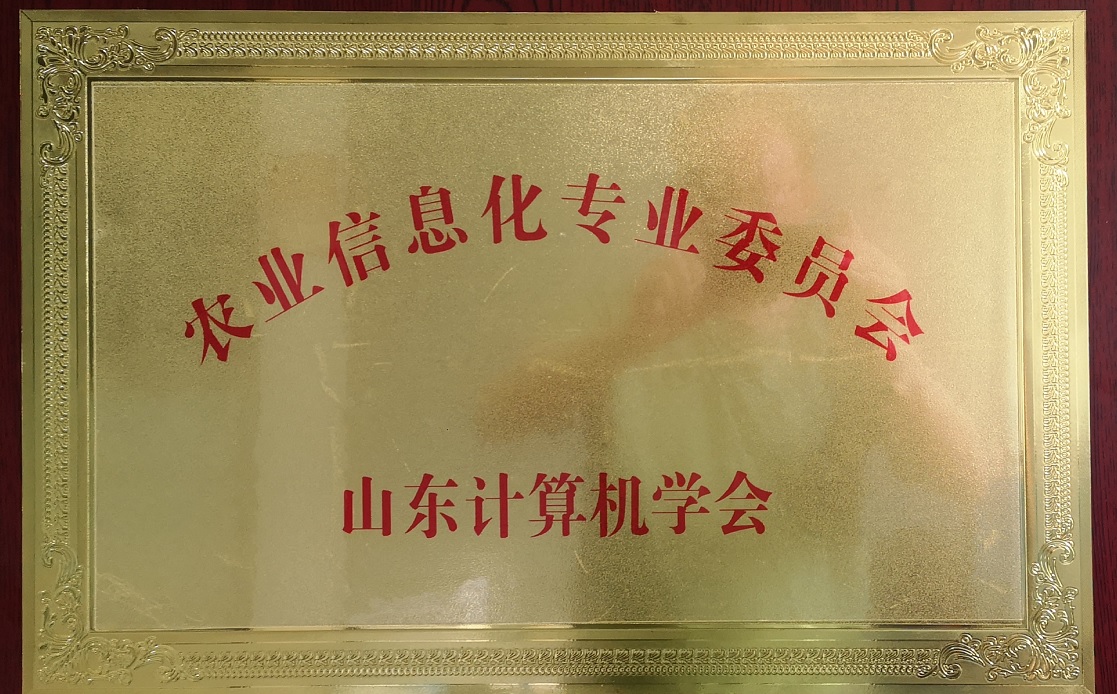 农业信息化专业委员会
山东计算机学会